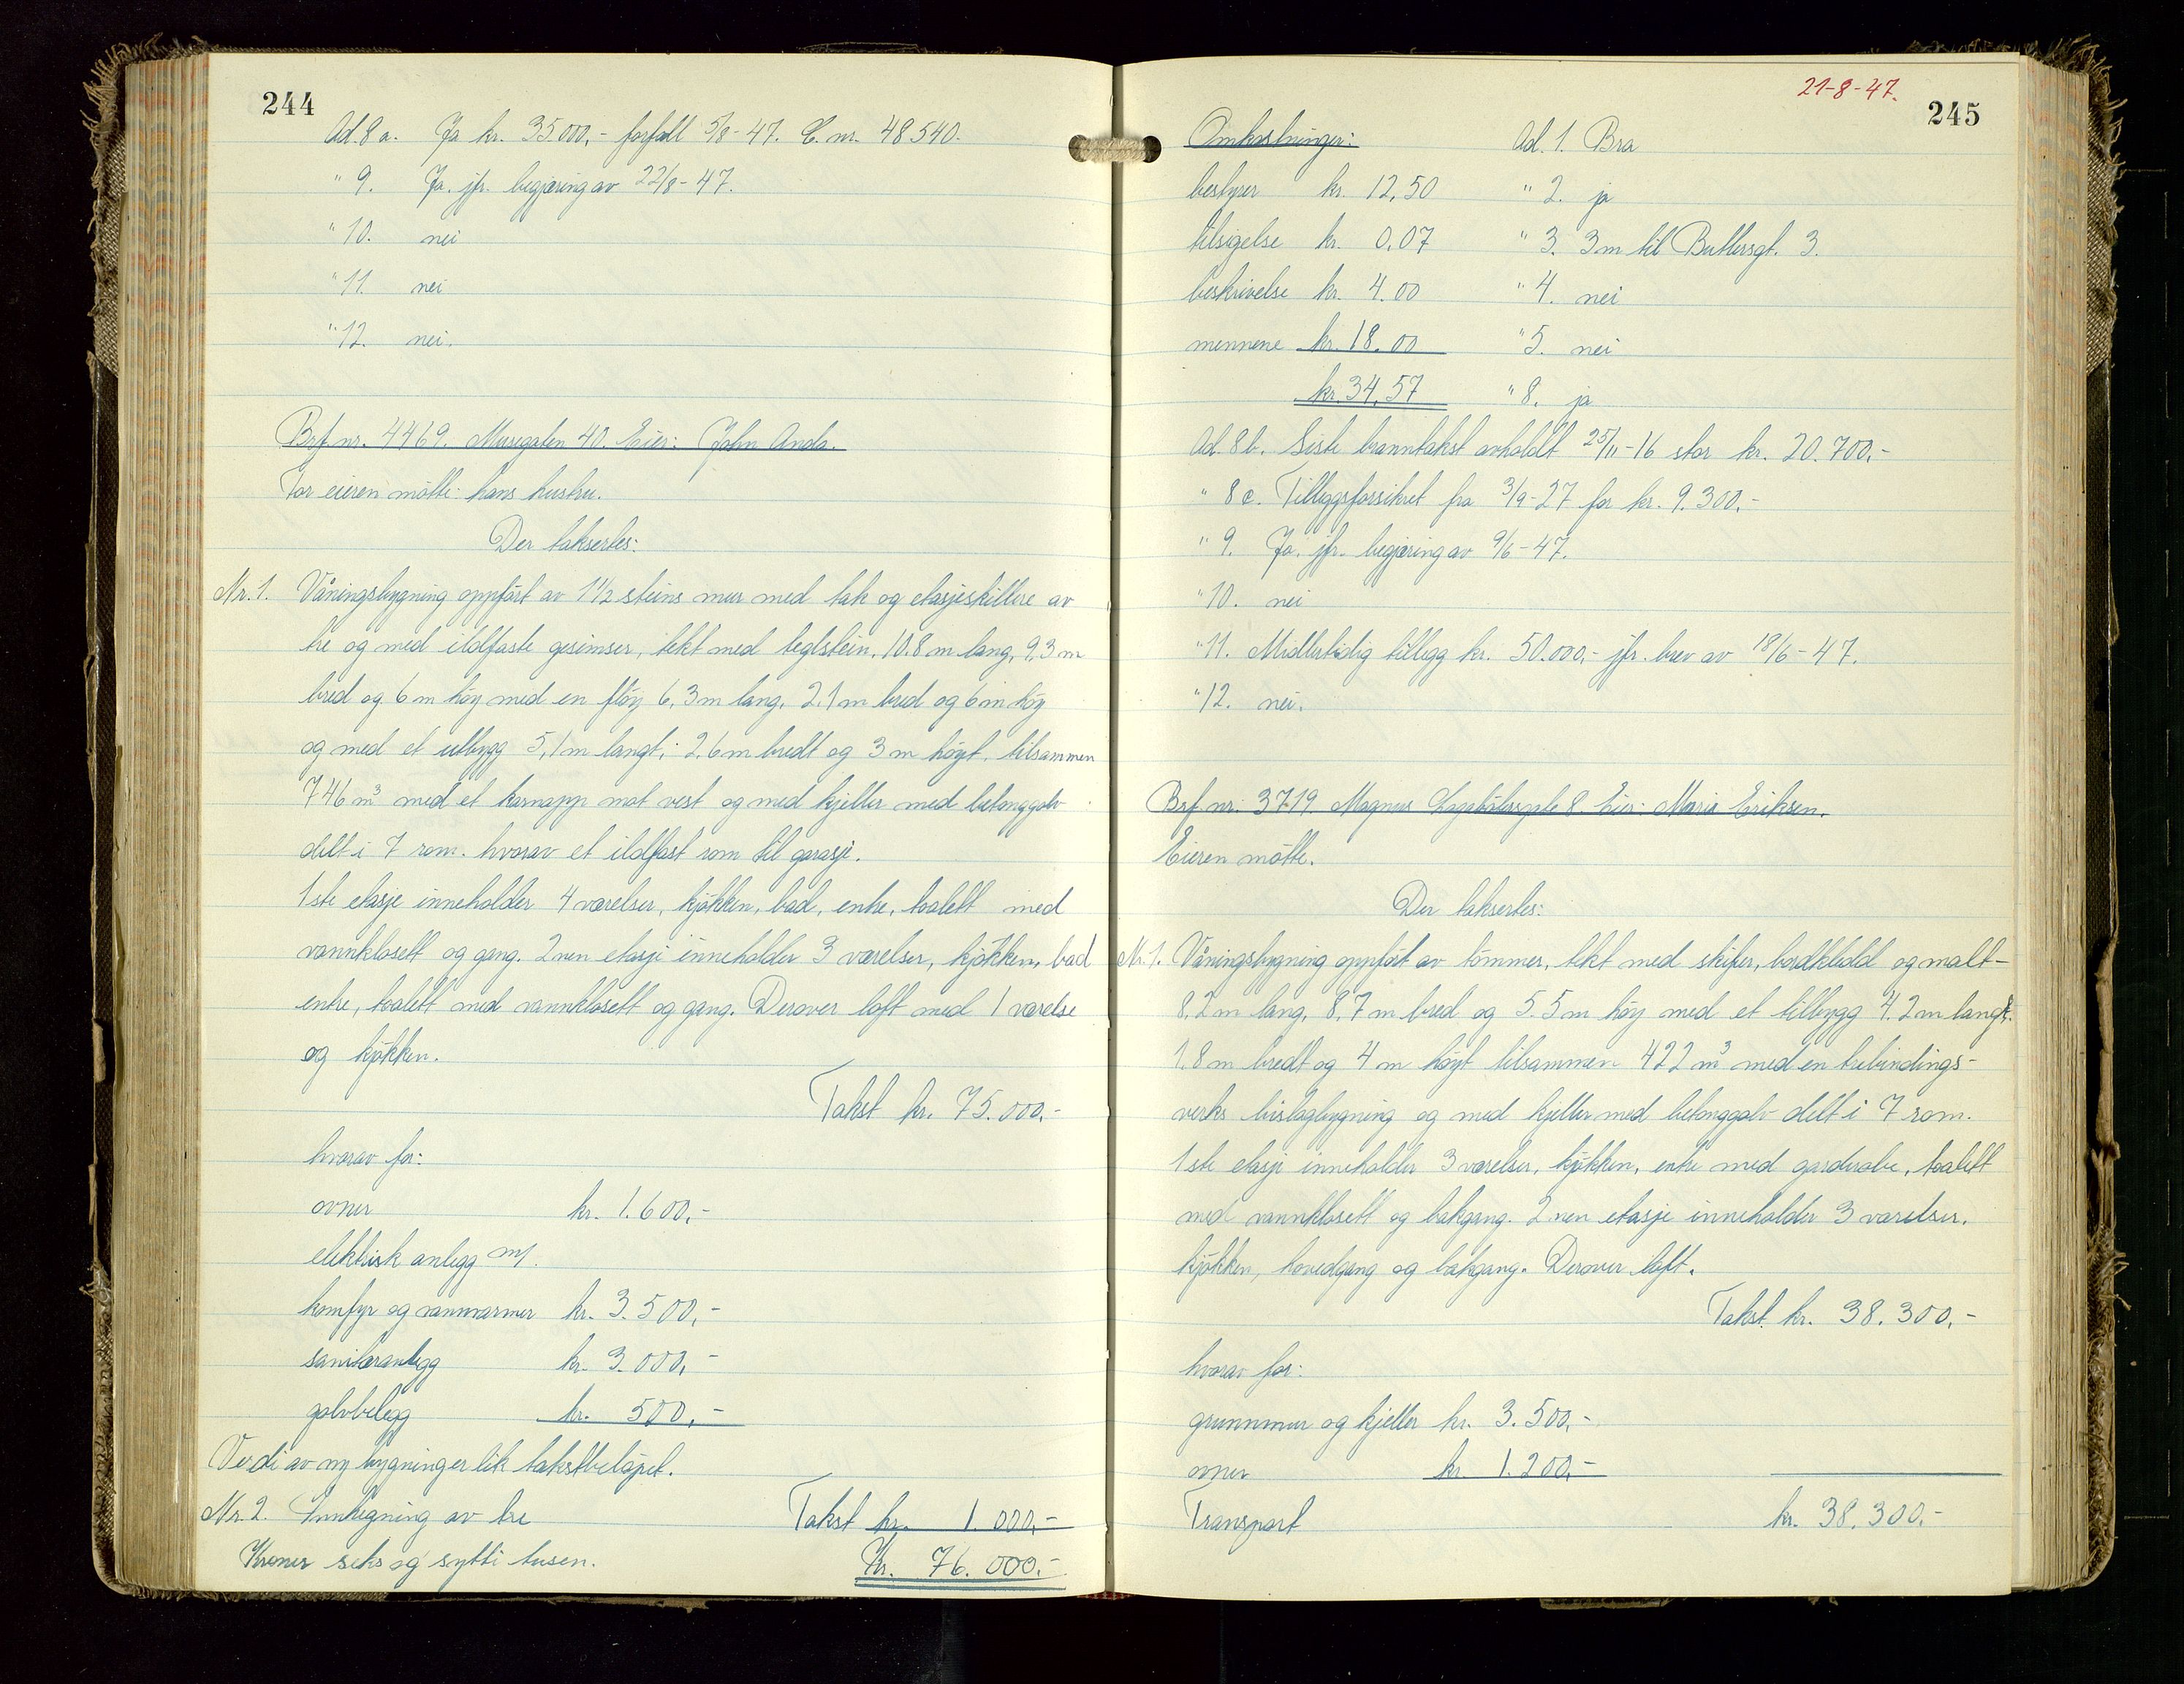 244
Ad. 8 a. Ja kr. 35000,- forfall 5/8-47. C. nr. 48540.
" 9. Ja. jfr. begjæring av 22/8-47.
" 10. nei
" 11. nei
" 12. nei.
Brf. nr. 4469. Musegaten 40. Eier: John Anda.
For eieren møtte: hans hustru.
Der taksertes:
Nr. 1. Våningsbygning oppført av 1 1/2 steins mur med tak og etasjeskillere av
tre og med ildfaste gesimser, tekt med teglstein. 10.8 m lang, 9.3 m
bred og 6 m høy med en fløy 6.3 m lang, 2.1 m bred og 6 m høy
og med et utbygg 5,1 m langt, 2.6 m bredt og 3 m høyt. tilsammen
746 m³ med et karnapp mot vest og med kjeller med betonggolv
delt i 7 rom. hvorav et ildfast rom til garasje.
1ste etasje inneholder 4 værelser, kjøkken, bad, entre, toalett med
vannklosett og gang. 2nen etasje inneholder 3 værelser, kjøkken, bad
entre, toalett med vannklosett og gang. Derover loft med 1 værelse
og kjøkken.
Takst kr. 75.000,-
hvorav for:
ovner kr. 1.600,-
elektrisk anlegg m/
komfyr og vannvarmer kr. 3.500,-
sanitæranlegg kr. 3.000,-
golvbelegg kr. 500,-
Verdi av ny bygning er lik takstbeløpet.
Nr. 2. Innhegning av tre Takst kr. 1.000,-
Kroner seks og sytti tusen. Kr. 76.000.-
21-8-47.
245
Omkostninger: Ad. 1. Bra
bestyrer kr. 12,50 " 2. ja
tilsigelse kr. 0,07 " 3. 3 m til Buttersgt. 3.
beskrivelse kr. 4.00 " 4. nei
mennene kr. 18.00 " 5. nei
kr. 34,57 " 8. ja
Ad. 8 b. Siste branntakst avholdt 25/11-16 stor kr. 20.700,-
" 8 c. Tilleggsforsikret fra 3/9-27 for kr. 9.300,-
" 9. Ja. jfr. begjæring av 9/6-47.
" 10. nei
" 11. Midlertidig tillegg kr. 50.000,- jfr. brev av 18/6-47.
" 12. nei.
Brf. nr. 3719. Magnus Lagabøtersgate 8. Eier: Maria Eriksen.
Eieren møtte.
Der taksertes:
Nr. 1. Våningsbygning oppført av tømmer, tekt med skifer, bordkledd og malt-
8.2 m lang, 8.7 m bred og 5.5 m høy med et tilbygg 4.2 m langt.
1.8 m bredt og 4 m høyt tilsammen 422 m³ med en trebindings-
verks bislagbygning og med kjeller med betonggolv delt i 7 rom.
1ste etasje inneholder 3 værelser, kjøkken, entre med garderobe, toalett
med vannklosett og bakgang. 2nen etasje inneholder 3 værelser,
kjøkken, hovedgang og bakgang. Derover loft.
Takst. kr. 38.300,-
hvorav for:
grunnmur og kjeller kr. 3.500,-
ovner kr. 1.200,-
Transport kr. 38.300.-